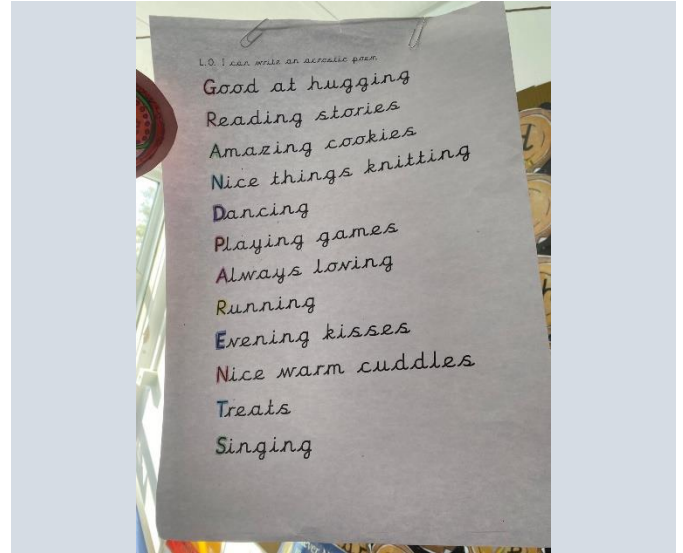 L.O. I can write an acrostic poem
Good at hugging
Reading stories
Amazing cookies
Nice things knitting
Dancing
Playing games
Always loving
Running
Evening kisses
Nice warm cuddles
Treats
Singing